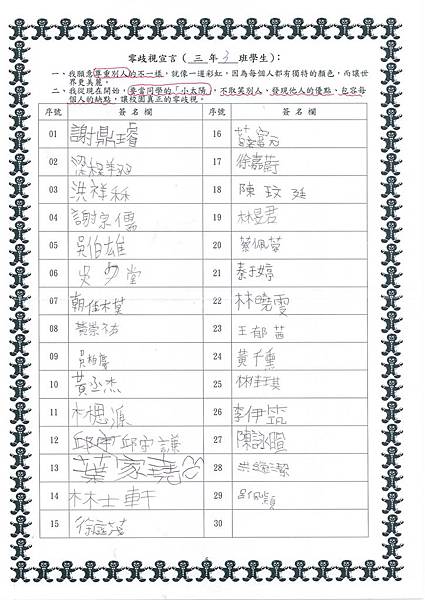 零歧視宣言（三年3班學生）：
一、我願意尊重別人的不一樣，就像一道彩虹，因為每個人都有獨特的顏色，而讓世
界更美麗。
二、我從現在開始，要當同學的「小太陽」，不取笑別人、發現他人的優點、包容每
個人的缺點，讓校園真正的零歧視。
序號 簽名欄 序號 簽名欄
01 謝鼎璿 16
02 17 徐嘉蔚
03 洪祥秝 18 陳玟廷
04 謝宗儒 19 林旻君
05 吳伯雄 20 蔡佩縈
06 史少堂 21 秦玗婷
07 22 林曉雯
08 黃崇 23 王郁茜
09 吳柏 24 黃千熏
10 黃丞杰 25 林佳琪
11 林楒源 26 李伊筑
12 邱守 邱守謙 27 陳詠暄
13 葉家堯 28 洪
14 林士軒 29 呂佩穎
15 徐 30